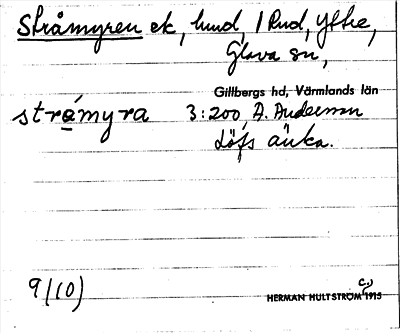 Stråmyren ek, lund, 1 Rud, Yttre,
Glava sn,
Gillbergs hd, Värmlands län
strå̱myra 3:200, A. Anderson
Löfs änka.
9/(0)
HERMAN HULTSTRÖM 1915